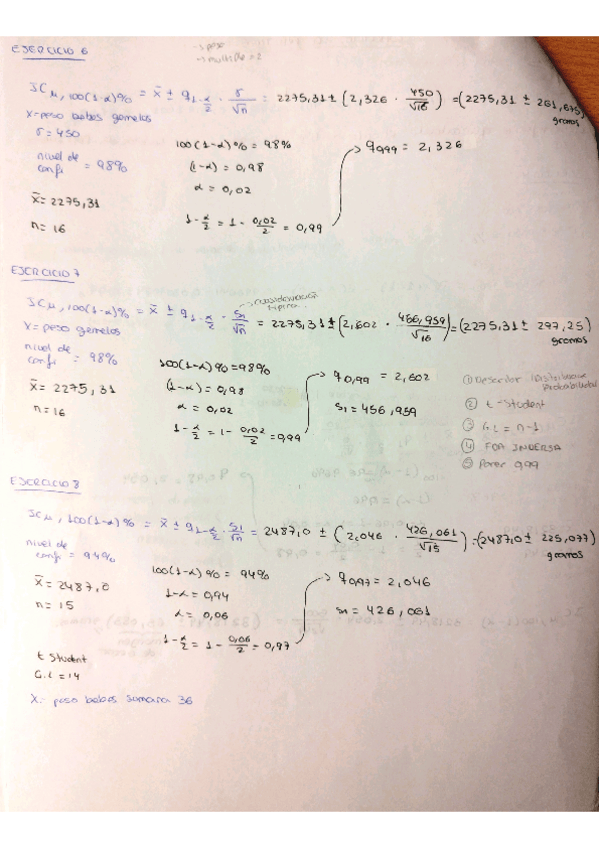 EJERCICIO 6
→ peso
→ multiple = 2
IC μ, 100(1-α)% = x̄ ± q1-α/2 · σ/√n = 2275,31 ± (2,326 · 450/√16) = (2275,31 ± 261,675) gramos
X = peso bebés gemelos
σ = 450
nivel de confi = 98%
x̄ = 2275,31
n = 16
100(1-α)% = 98%
(1-α) = 0,98
α = 0,02
1-α/2 = 1 - 0,02/2 = 0,99
→ q0,99 = 2,326
EJERCICIO 7
IC μ, 100(1-α)% = x̄ ± q1-α/2 · S1/√n = 2275,31 ± (2,602 · 456,959/√16) = (2275,31 ± 297,25) gramos
→ cuasidesviación típica
X = peso gemelos
nivel de confi = 98%
x̄ = 2275,31
n = 16
100(1-α)% = 98%
(1-α) = 0,98
α = 0,02
1-α/2 = 1 - 0,02/2 = 0,99
→ q0,99 = 2,602
S1 = 456,959
① Describir (Distribución Probabilidad
② t-Student
③ G.L = n-1
④ FDA INVERSA
⑤ Poner 0,99
EJERCICIO 8
IC μ, 100(1-α)% = x̄ ± q1-α/2 · S1/√n = 2487,0 ± (2,046 · 426,061/√15) = (2487,0 ± 225,077) gramos
nivel de confi = 94%
x̄ = 2487,0
n = 15
100(1-α)% = 94%
1-α = 0,94
α = 0,06
1-α/2 = 1 - 0,06/2 = 0,97
→ q0,97 = 2,046
S1 = 426,061
t Student
G.L = 14
X = peso bebés semana 36